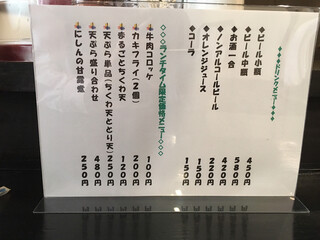 ◇◇◇ドリンクメニュー◇◇◇
ビール小瓶 450円
ビール中瓶 580円
お酒一合 420円
ノンアルコールビール 220円
オレンジジュース 150円
コーラ 150円
◇◇◇ランチタイム限定価格メニュー◇◇◇
牛肉コロッケ 100円
カキフライ(2個) 200円
半るごとちくわ天 120円
天ぷら単品(ちくわ天ととり天) 250円
天ぷら盛り合わせ 480円
にしんの甘露煮 250円